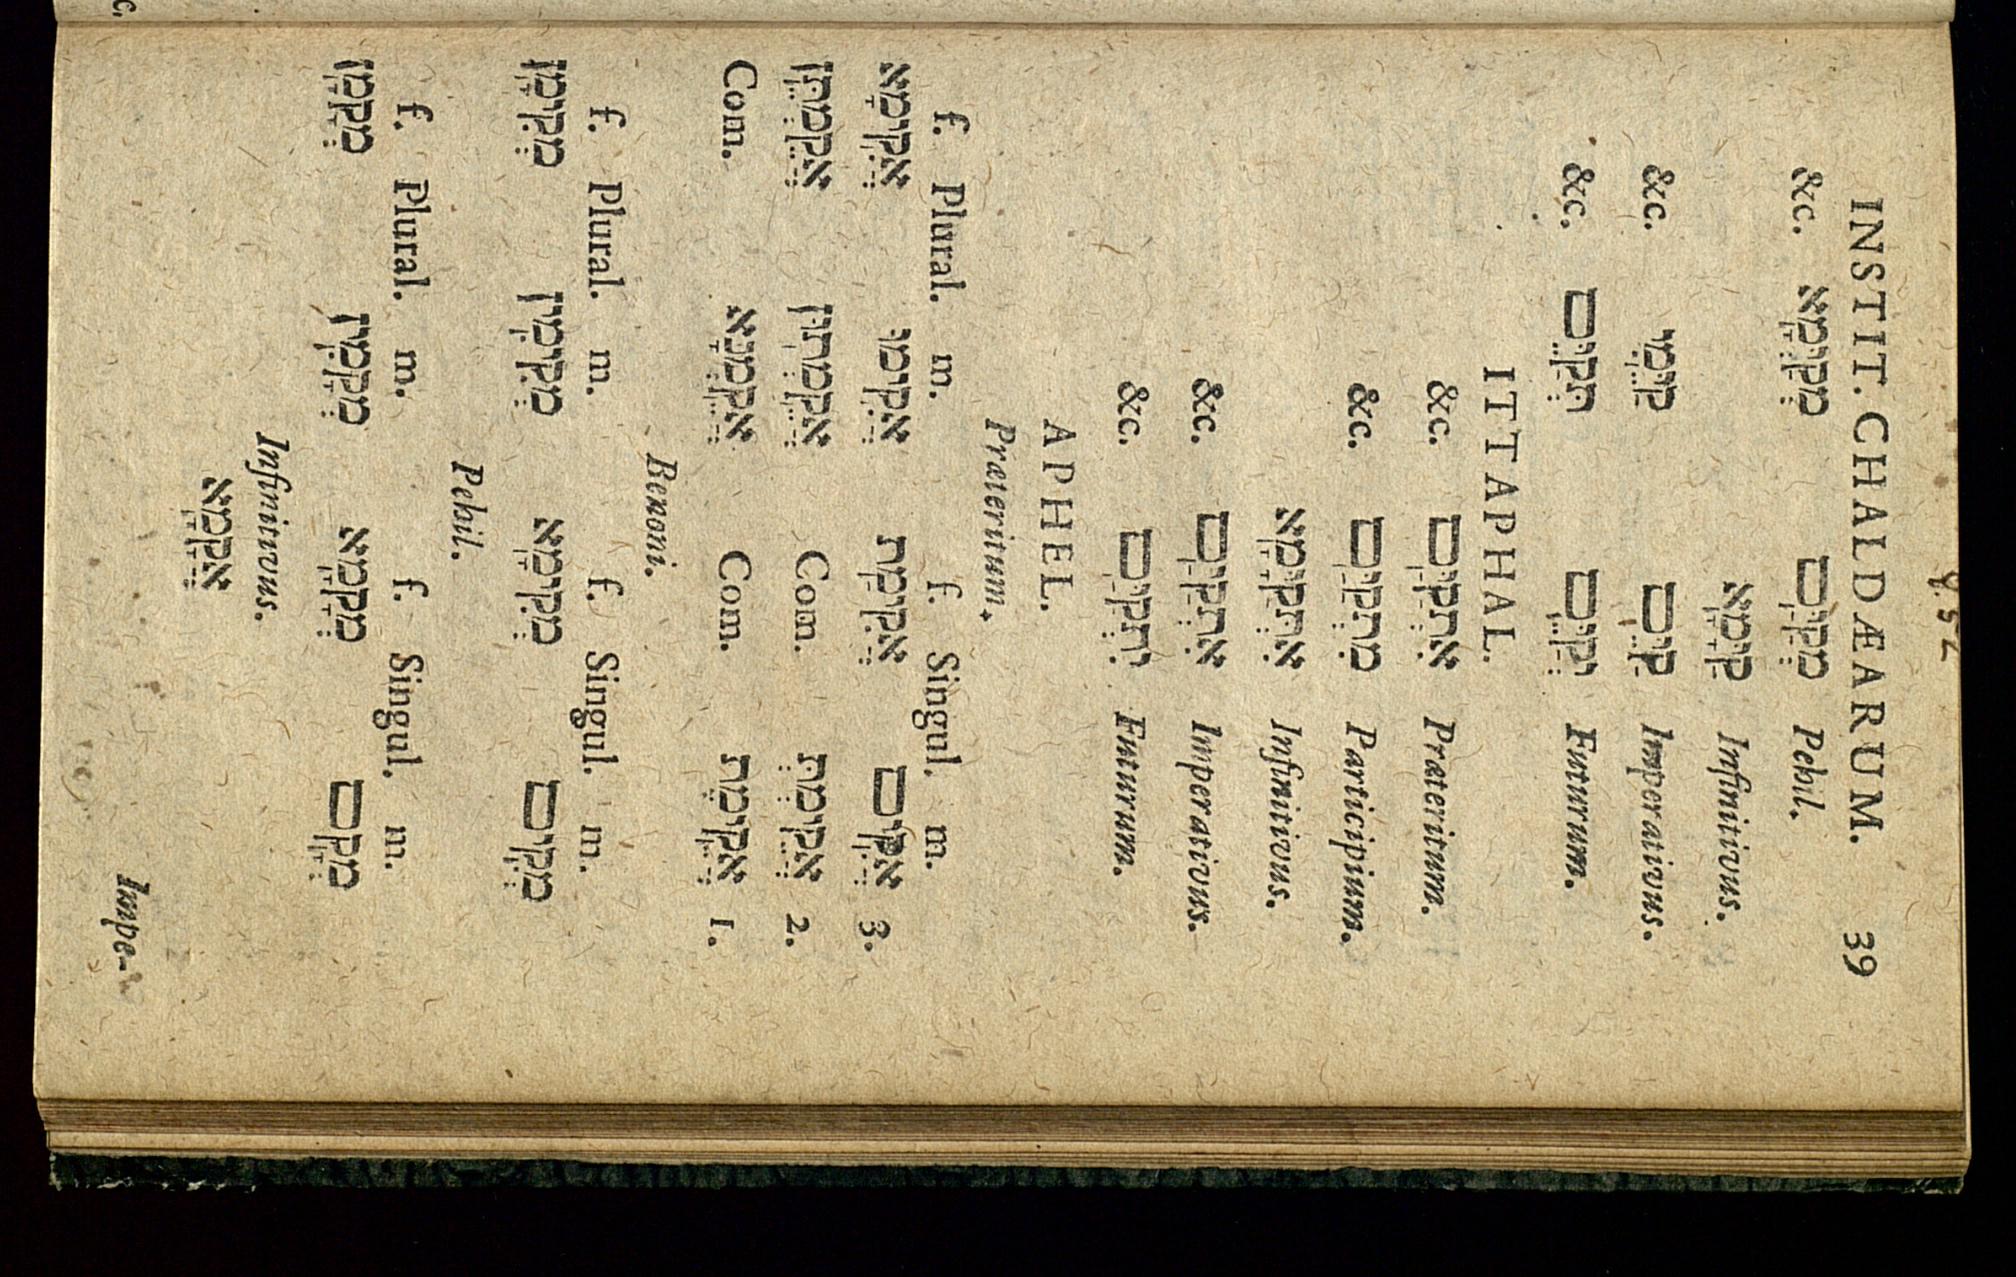 INSTIT. CHALDÆARUM. 39
&c. מְקַיְּמָא מְקַיַּם Pehil.
קַיָּמָא Infinitivus.
&c. קַיֵּמִי קַיֵּם Imperativus.
&c. תְּקַיֵּם יְקַיֵּם Futurum.
ITTAPHAL.
&c. אִתְּקַיַּם Præteritum.
&c. מִתְּקַיַּם Participium.
אִתְּקַיָּמָא Infinitivus.
&c. אִתְּקַיַּם Imperativus.
&c. יִתְּקַיַּם Futurum.
APHEL.
Præteritum.
f. Plural. m. f. Singul. m.
אֲקִימָא אֲקִימוּ אֲקִימַת אֲקִים 3.
אֲקֵמְתֵּן אֲקֵמְתּוּן Com. אֲקֵימְתְּ 2.
Com. אֲקֵמְנָא Com. אֲקֵימִת 1.
Benoni.
f. Plural. m. f. Singul. m.
מְקִימָן מְקִימִין מְקִימָא מְקִים
Pehil.
f. Plural. m. f. Singul. m.
מְקָמָן מְקָמִין מְקָמָא מְקָם
Infinitivus.
אֲקָמָא
Impe-